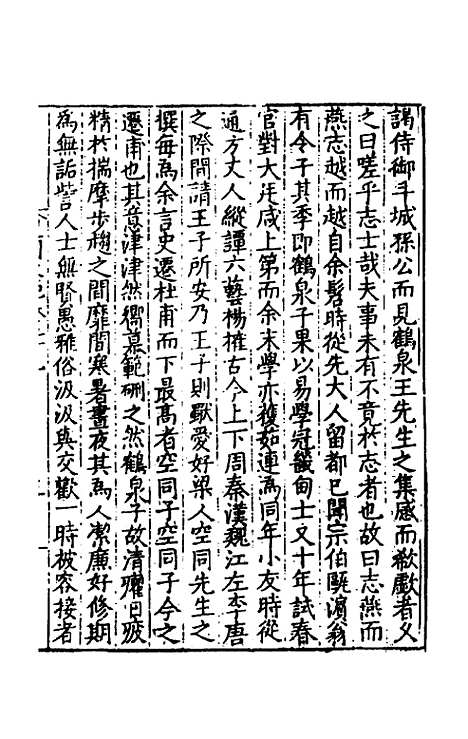 謁侍御斗城孫公而見鶴泉王先生之集感而欷歔者乂
之曰嗟乎志士哉夫事未有不竟於志者也故曰志燕而
燕志越而越自余髫時從先大人留都已聞宗伯甌濵翁
有令子其季即鶴泉子果以易學冠畿甸士又十年試春
官對大廷咸上第而余末學亦獲茹連為同年小友時從
通方丈人縱譚六藝楊搉古今上下周秦漢魏江左李唐
之際間請王子所安乃王子則獸愛好梁人空同先生之
撰每為余言史遷杜甫而下最高者空同子空同子今之
遷甫也其意津津然嚮慕範砌之然鶴泉子故清癯日疲
精於揣摩步趨之間靡間寒暑晝夜其為人潔廉好修期
為無詬訾人士無賢愚雅俗汲汲與交歡一時被容接者